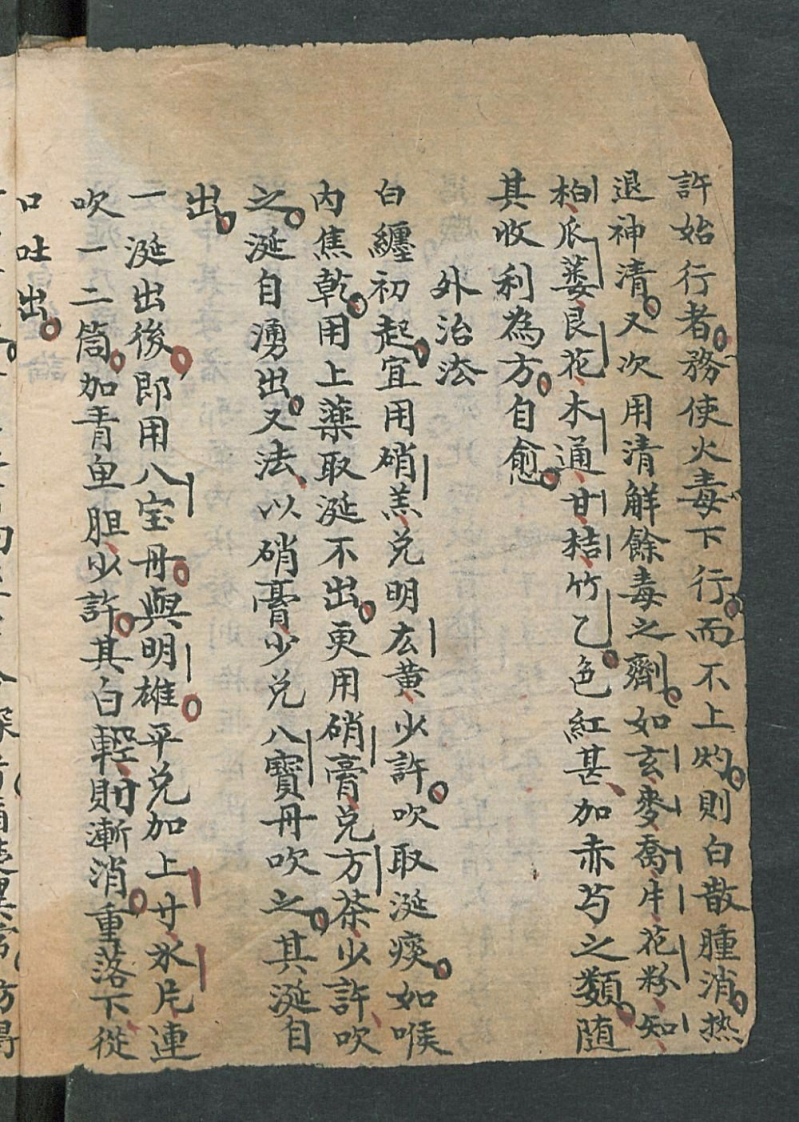 許始行者務使火毒下行而不上灼則白散腫消热
退神清又次用清解餘毒之劑如玄麥喬牛花粉知
柏瓜蒌艮花木通甘桔竹乙色紅甚加赤芍之類随
其收利為方自愈
外治法
白纏初起宜用硝羔兑明玄黄少許吹取涎痰如喉
内焦乾用上藥取涎不出更用硝膏兑方茶少許吹
之涎自湧出又法以硝膏少兑八寶丹吹之其涎自
出
一涎出後即用八宝丹與明雄平兑加上寸氷片連
吹一二筒加青鱼胆少許其白輕則漸消重落下從
口吐出